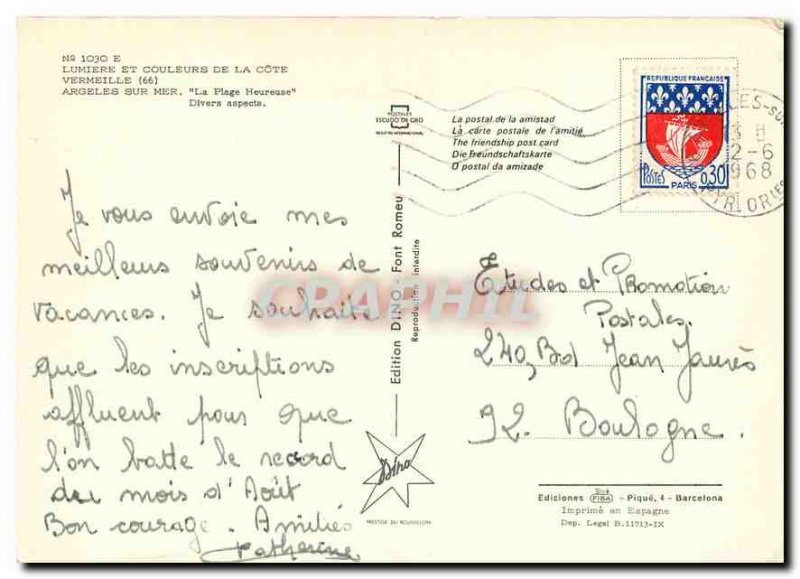 Nº 1030 E
LUMIERE ET COULEURS DE LA CÔTE
VERMEILLE (66)
ARGELES SUR MER. "La Plage Heureuse"
Divers aspects.
POSTALES
ESCUDO DE ORO
La postal de la amistad
La carte postale de l'amitié
The friendship post card
Die Freundschaftskarte
O postal da amizade
REPUBLIQUE FRANÇAISE
POSTES
0,30
PARIS
13 H
2-6
1968
Je vous envoie mes
meilleurs souvenirs de
vacances. Je souhaite
que les inscriptions
affluent pour que
l'on batte le record
du mois d'Août
Bon courage. Amitiés
Catherine
Edition DINO - Font Romeu
Reproduction interdite
Dino
PRESTIGE DU ROUSSILLON
CARTAPHIL
Etudes et Promotion
Postales.
240, Bd Jean Jaurès
92. Boulogne.
Ediciones FISA - Piqué, 4 - Barcelona
Imprimé en Espagne
Dep. Legal B.11713-IX